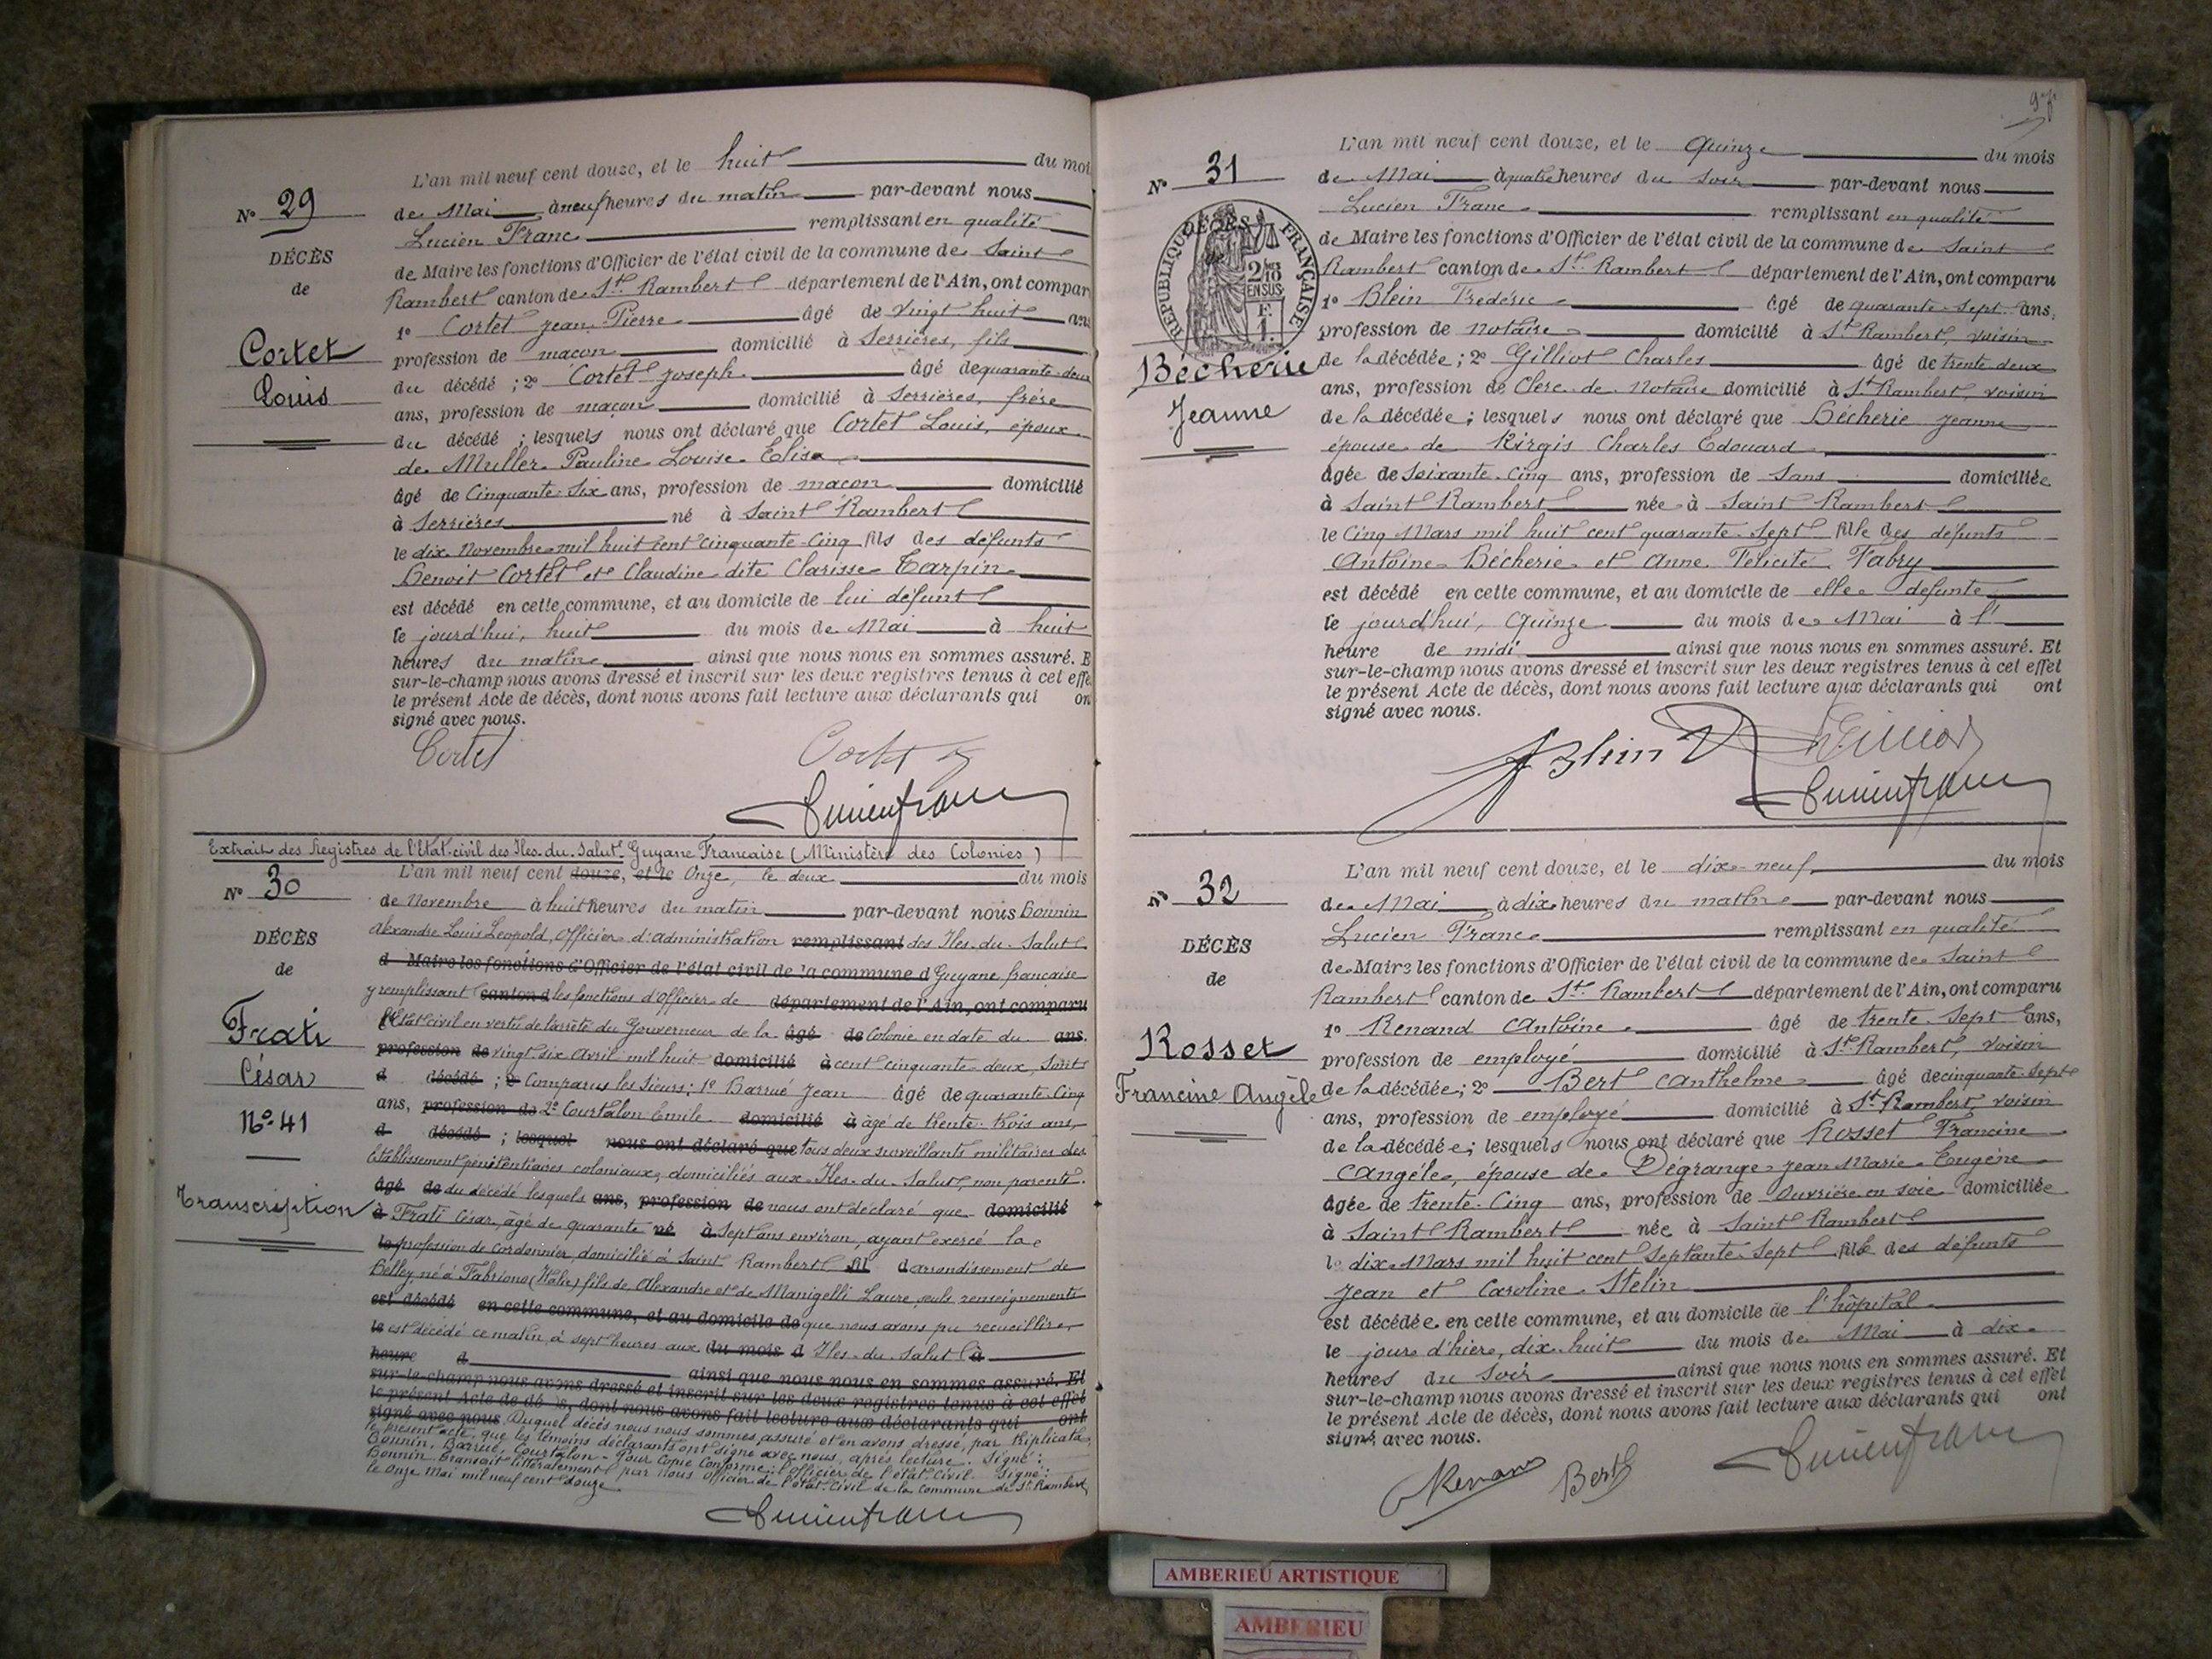 L'an mil neuf cent douze, et le huit du moi
N° 29
de Mai à neuf heures du matin par-devant nous
Lucien Franc remplissant en qualité
DÉCÈS
de Maire les fonctions d'Officier de l'état civil de la commune de Saint
de
Rambert canton de St. Rambert département de l'Ain, ont compar
1° Cortet Jean-Pierre âgé de vingt huit ans
Cortet
profession de maçon domicilié à Serrières, fils
Louis
du décédé ; 2° Cortet Joseph âgé de quarante-deux
ans, profession de maçon domicilié à Serrières, frère
du décédé ; lesquels nous ont déclaré que Cortet Louis, époux
de Muller Pauline Louise Elisa
âgé de Cinquante-six ans, profession de maçon domicilié
à Serrières né à Saint Rambert
le dix Novembre mil huit cent cinquante-cinq fils des défunts
Benoit Cortet et Claudine dite Clarisse Tarpin
est décédé en cette commune, et au domicile de lui défunt
le jourd'hui, huit du mois de Mai à huit
heures du matin ainsi que nous nous en sommes assuré. E
sur-le-champ nous avons dressé et inscrit sur les deux registres tenus à cet effe
le présent Acte de décès, dont nous avons fait lecture aux déclarants qui on
signé avec nous.
Cortet Cortet
Lucien Franc
Extrait des Registres de l'Etat-civil des Iles-du-Salut Guyane Française (Ministère des Colonies)
L'an mil neuf cent douze, et le Onze, le deux du mois
N° 30
de Novembre à huit heures du matin par-devant nous Bonnin
DÉCÈS
Alexandre Louis Léopold, Officier d'administration remplissant des Iles-du-Salut
de
d Maire les fonctions d'Officier de l'état civil de la commune d Guyane française
y remplissant canton d les fonctions d'Officier de département de l'Ain, ont comparu
Frati
l'Etat civil en vertu de l'arrêté du Gouverneur de la âgé de Colonie en date du ans.
César
profession de vingt-six Avril mil huit domicilié à cent cinquante-deux, Sont
d décédé ; 2° Comparus les Sieurs : 1° Barrué Jean âgé de quarante-Cinq
N° 41
ans, profession de 2° Courtalon Emile domicilié à âgé de trente-trois ans,
d décédé ; lesquel nous ont déclaré que tous deux surveillants militaires des
Etablissement pénitentiaires coloniaux, domiciliés aux Iles-du-Salut, non parents
Transcription
âgé de du décédé lesquels ans, profession de nous ont déclaré que domicilié
à Frati César, âgé de quarante né à Sept ans environ, ayant exercé la
le profession de cordonnier, domicilié à Saint Rambert fil d arrondissement de
Belley, né à Fabriano (Italie) fils de Alexandre et de Manigelli Laure, seuls renseignements
est décédé en cette commune, et au domicile de que nous avons pu recueillir
le est décédé ce matin, à sept heures aux du mois d Iles-du-Salut à
heure d
ainsi que nous nous en sommes assuré. Et
sur-le-champ nous avons dressé et inscrit sur les deux registres tenus à cet effet
le présent Acte de dé s, dont nous avons fait lecture aux déclarants qui ont
signé avec nous Duquel décès nous nous sommes assuré et en avons dressé, par triplicata,
le présent acte, que les témoins déclarants ont signé avec nous, après lecture. Signé :
Bonnin, Barrué, Courtalon - Pour Copie Conforme : l'officier de l'état-civil. Signé :
Bonnin. Transcrit littéralement par nous Officier de l'état-Civil de la Commune de St. Rambert,
le Onze Mai mil neuf cent douze.
Lucien Franc
L'an mil neuf cent douze, et le Quinze du mois
N° 31
de Mai à quatre heures du soir par-devant nous
Lucien Franc remplissant en qualité
DÉCÈS
RÉPUBLIQUE FRANÇAISE
2/10 EN SUS
F. 1.
de Maire les fonctions d'Officier de l'état civil de la commune de Saint
Rambert canton de St. Rambert département de l'Ain, ont comparu
1° Blein Frédéric âgé de quarante-sept ans,
profession de notaire domicilié à St Rambert, voisin
Bécherie
de la décédée ; 2° Gilliot Charles âgé de trente deux
ans, profession de Clerc de Notaire domicilié à St Rambert, voisin
Jeanne
de la décédée ; lesquels nous ont déclaré que Bécherie Jeanne
épouse de Kirgis Charles Edouard
âgée de soixante-cinq ans, profession de Sans domiciliée
à Saint Rambert née à Saint Rambert
le Cinq Mars mil huit cent quarante-sept fille des défunts
Antoine Bécherie et Anne Félicité Fabry
est décédé en cette commune, et au domicile de elle défunte
le jourd'hui, Quinze du mois de Mai à l'
heure de midi ainsi que nous nous en sommes assuré. Et
sur-le-champ nous avons dressé et inscrit sur les deux registres tenus à cet effet
le présent Acte de décès, dont nous avons fait lecture aux déclarants qui ont
signé avec nous.
Blein Gilliot
Lucien Franc
L'an mil neuf cent douze, et le dix-neuf du mois
N° 32
de Mai à dix heures du matin par-devant nous
Lucien Franc remplissant en qualité
DÉCÈS
de Maire les fonctions d'Officier de l'état civil de la commune de Saint
de
Rambert canton de St. Rambert département de l'Ain, ont comparu
1° Renand Antoine âgé de trente-sept ans,
Rosset
profession de employé domicilié à St. Rambert, voisin
Francine Angèle
de la décédée ; 2° Bert Anthelme âgé de cinquante-sept
ans, profession de employé domicilié à St Rambert, voisin
de la décédée ; lesquels nous ont déclaré que Rosset Francine
Angèle, épouse de Dégrange Jean Marie Eugène
âgée de trente-cinq ans, profession de Ouvrière en soie domiciliée
à Saint Rambert née à Saint Rambert
le dix Mars mil huit cent Septante-Sept fille des défunts
Jean et Caroline Stelin
est décédée en cette commune, et au domicile de l'hôpital
le jour d'hier, dix-huit du mois de Mai à dix
heures du soir ainsi que nous nous en sommes assuré. Et
sur-le-champ nous avons dressé et inscrit sur les deux registres tenus à cet effet
le présent Acte de décès, dont nous avons fait lecture aux déclarants qui ont
signé avec nous.
Renand Bert Lucien Franc
AMBERIEU ARTISTIQUE
AMBERIEU